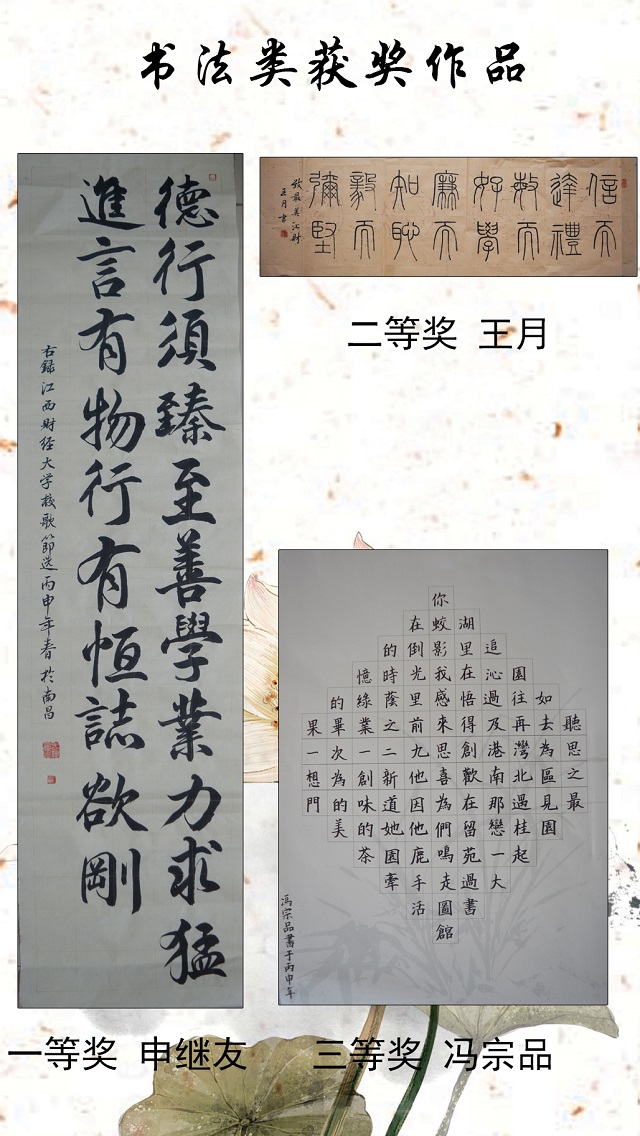 书法类获奖作品
德行須臻至善學業力求猛
進言有物行有恒誌欲剛
右録江西财经大学校歌節选丙申年春於南昌
一等奖 申继友
信而
達禮
敏而
好學
廉而
知恥
毅而
彌堅
致最美江财
王月书
二等奖 王月
聽思之最
如去為區見園
園往再灣北遇桂起
追沁過及港南那戀一大
湖里在悟得創歡在留苑過書
你蛟影我感來思喜為們鳴走圖館
在倒光里前九他因他鹿手活
的時蔭之二新道她園牽
憶綠業一創味的茶
的畢次為的美
果一想門
冯宗品書于丙申年
三等奖 冯宗品